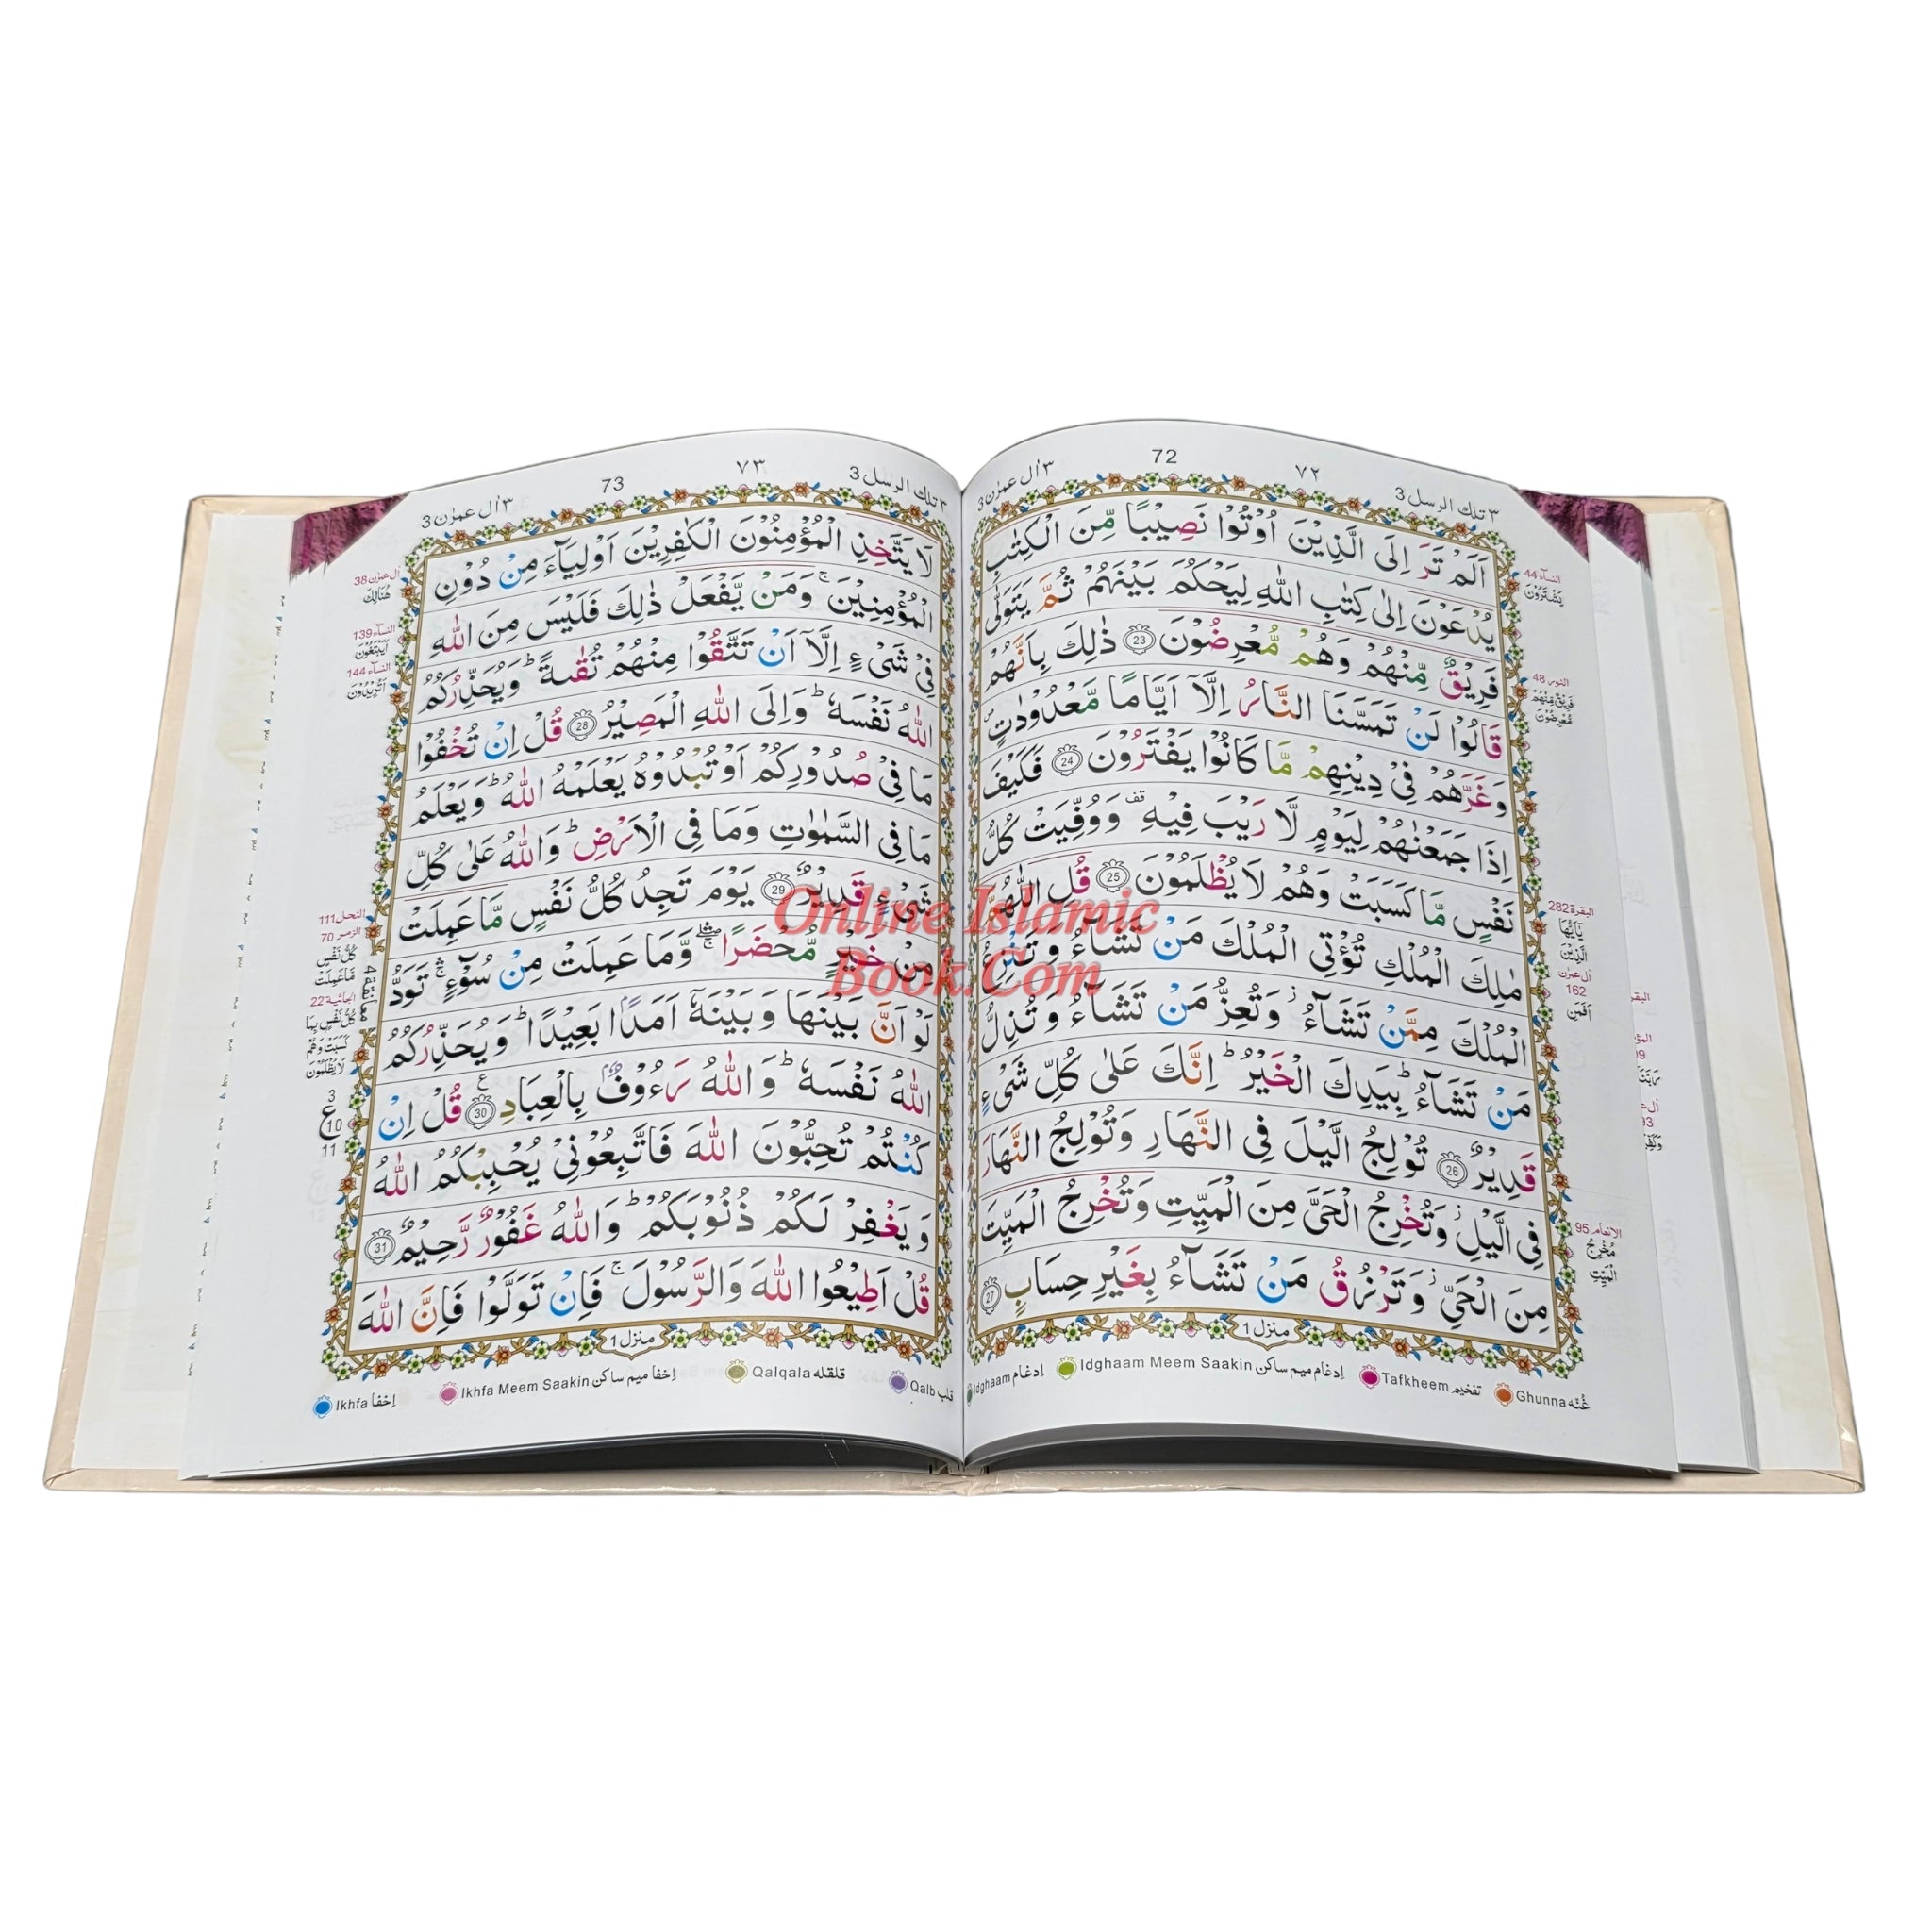 ٣ تلك الرسل 3
٧٢
72
٣ اٰل عمرٰن 3
اَلَمْ تَرَ اِلَى الَّذِيْنَ اُوْتُوْا نَصِيْبًا مِّنَ الْكِتٰبِ
يُدْعَوْنَ اِلٰى كِتٰبِ اللّٰهِ لِيَحْكُمَ بَيْنَهُمْ ثُمَّ يَتَوَلّٰى
فَرِيْقٌ مِّنْهُمْ وَهُمْ مُّعْرِضُوْنَ 23 ذٰلِكَ بِاَنَّهُمْ
قَالُوْا لَنْ تَمَسَّنَا النَّارُ اِلَّاۤ اَيَّامًا مَّعْدُوْدٰتٍ
وَغَرَّهُمْ فِيْ دِيْنِهِمْ مَّا كَانُوْا يَفْتَرُوْنَ 24 فَكَيْفَ
اِذَا جَمَعْنٰهُمْ لِيَوْمٍ لَّا رَيْبَ فِيْهِ قف وَوُفِّيَتْ كُلُّ
نَفْسٍ مَّا كَسَبَتْ وَهُمْ لَا يُظْلَمُوْنَ 25 قُلِ اللّٰهُمَّ
مٰلِكَ الْمُلْكِ تُؤْتِي الْمُلْكَ مَنْ تَشَآءُ وَتَنْزِعُ
الْمُلْكَ مِمَّنْ تَشَآءُ ز وَتُعِزُّ مَنْ تَشَآءُ وَتُذِلُّ
مَنْ تَشَآءُ ط بِيَدِكَ الْخَيْرُ ط اِنَّكَ عَلٰى كُلِّ شَيْءٍ
قَدِيْرٌ 26 تُوْلِجُ الَّيْلَ فِي النَّهَارِ وَتُوْلِجُ النَّهَارَ
فِي الَّيْلِ ز وَتُخْرِجُ الْحَيَّ مِنَ الْمَيِّتِ وَتُخْرِجُ الْمَيِّتَ
مِنَ الْحَيِّ ز وَتَرْزُقُ مَنْ تَشَآءُ بِغَيْرِ حِسَابٍ 27
منزل 1
النسآء 44
يَشْتَرُوْنَ
النور 48
فَرِيْقٌ مِّنْهُمْ
مُّعْرِضُوْنَ
البقرة 282
يٰۤاَيُّهَا
الَّذِيْنَ
اٰل عمرٰن
162
اَفَمَنِ
الانعام 95
مُخْرِجُ
الْمَيِّتِ
Idghaam ادغام
Idghaam Meem Saakin ادغام ميم ساكن
Tafkheem تفخيم
Ghunna غُنّه
٣ تلك الرسل 3
٧٣
73
٣ اٰل عمرٰن 3
لَا يَتَّخِذِ الْمُؤْمِنُوْنَ الْكٰفِرِيْنَ اَوْلِيَآءَ مِنْ دُوْنِ
الْمُؤْمِنِيْنَ ج وَمَنْ يَّفْعَلْ ذٰلِكَ فَلَيْسَ مِنَ اللّٰهِ
فِيْ شَيْءٍ اِلَّاۤ اَنْ تَتَّقُوْا مِنْهُمْ تُقٰىةً ط وَيُحَذِّرُكُمُ
اللّٰهُ نَفْسَهٗ ط وَاِلَى اللّٰهِ الْمَصِيْرُ 28 قُلْ اِنْ تُخْفُوْا
مَا فِيْ صُدُوْرِكُمْ اَوْ تُبْدُوْهُ يَعْلَمْهُ اللّٰهُ ط وَيَعْلَمُ
مَا فِي السَّمٰوٰتِ وَمَا فِي الْاَرْضِ ط وَاللّٰهُ عَلٰى كُلِّ
شَيْءٍ قَدِيْرٌ 29 يَوْمَ تَجِدُ كُلُّ نَفْسٍ مَّا عَمِلَتْ
مِنْ خَيْرٍ مُّحْضَرًا وَّمَا عَمِلَتْ مِنْ سُوْٓءٍ تَوَدُّ
لَوْ اَنَّ بَيْنَهَا وَبَيْنَهٗۤ اَمَدًاۢ بَعِيْدًا ط وَيُحَذِّرُكُمُ
اللّٰهُ نَفْسَهٗ ط وَاللّٰهُ رَءُوْفٌۢ بِالْعِبَادِ 30 ع قُلْ اِنْ
كُنْتُمْ تُحِبُّوْنَ اللّٰهَ فَاتَّبِعُوْنِيْ يُحْبِبْكُمُ اللّٰهُ
وَيَغْفِرْ لَكُمْ ذُنُوْبَكُمْ ط وَاللّٰهُ غَفُوْرٌ رَّحِيْمٌ 31
قُلْ اَطِيْعُوا اللّٰهَ وَالرَّسُوْلَ ج فَاِنْ تَوَلَّوْا فَاِنَّ اللّٰهَ
منزل 1
اٰل عمرٰن 38
هُنَالِكَ
النسآء 139
اَيَبْتَغُوْنَ
النسآء 144
اَتُرِيْدُوْنَ
النحل 111
الزمر 70
كُلُّ نَفْسٍ
مَّا عَمِلَتْ
الجاثية 22
كُلُّ نَفْسٍ بِمَا
كَسَبَتْ وَهُمْ
لَا يُظْلَمُوْنَ
معانقة
3
ع
10
11
Ikhfa اخفا
Ikhfa Meem Saakin اخفا ميم ساكن
Qalqala قلقله
Qalb قلب
Online Islamic
Book.Com